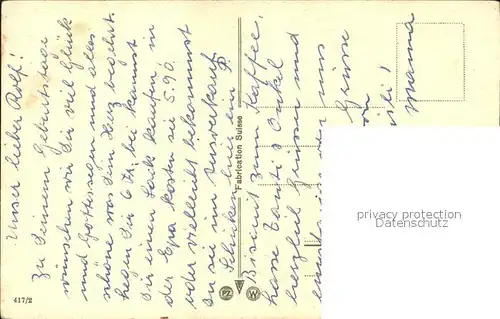 Unser lieber Rolf!
Zu Deinem Geburtstage
wünschen wir Dir viel Glück
und Gottessegen und alles
schöne was dein Herz begehrt.
legen Dir 6 Fr. bei kannst
Dir einen Sack kaufen in
der Epa kosten sie 5.90.
oder vielleicht bekommst
Du sie im Ausverkauf
Schicken hier ein P.
Biscuit zum Kaffee.
Tanti & Onkel
herzlich Grüssen und
uns
Grüsse
von
Mama
Fabrication Suisse
417/2
PZ
W
privacy protection
watermark